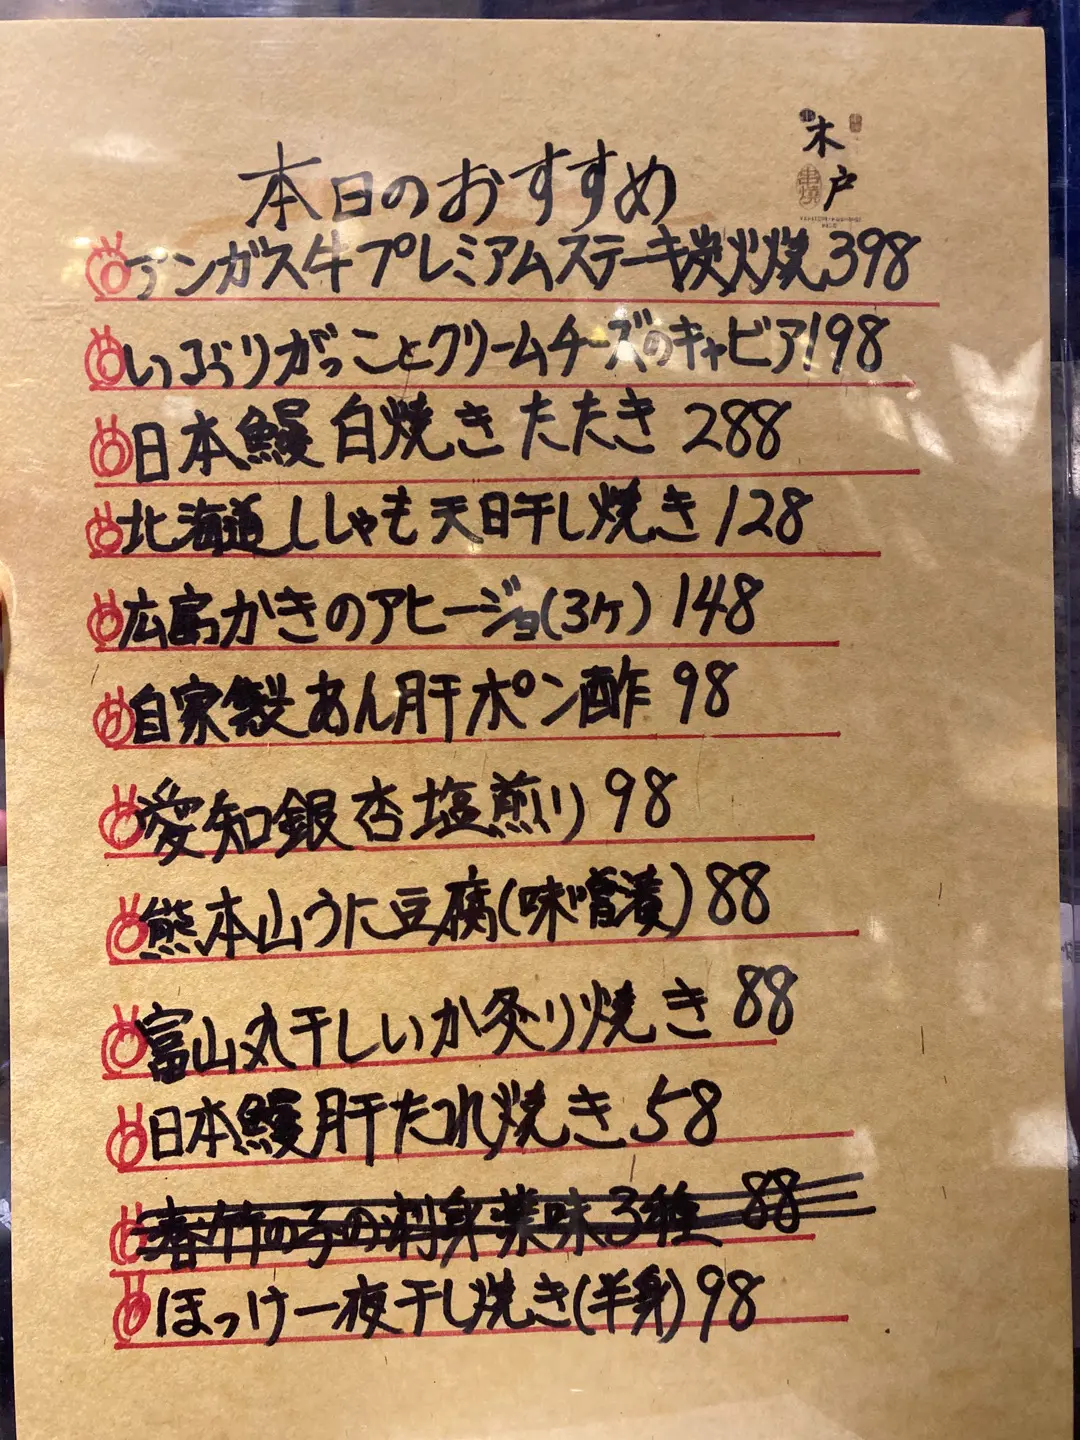 木戸
串燒
本日のおすすめ
アンガス牛プレミアムステーキ炭火焼 398
いぶりがっことクリームチーズのキャビア 198
日本鰻 白焼き たたき 288
北海道ししゃも 天日干し焼き 128
広島かきのアヒージョ(3ヶ) 148
自家製あん肝ポン酢 98
愛知銀杏塩煎り 98
熊本山うに豆腐(味噌漬) 88
富山丸干しいか炙り焼き 88
日本鰻肝たれ焼き 58
春竹の子の刺身薬味3種 88
ほっけ一夜干し焼き(半身) 98